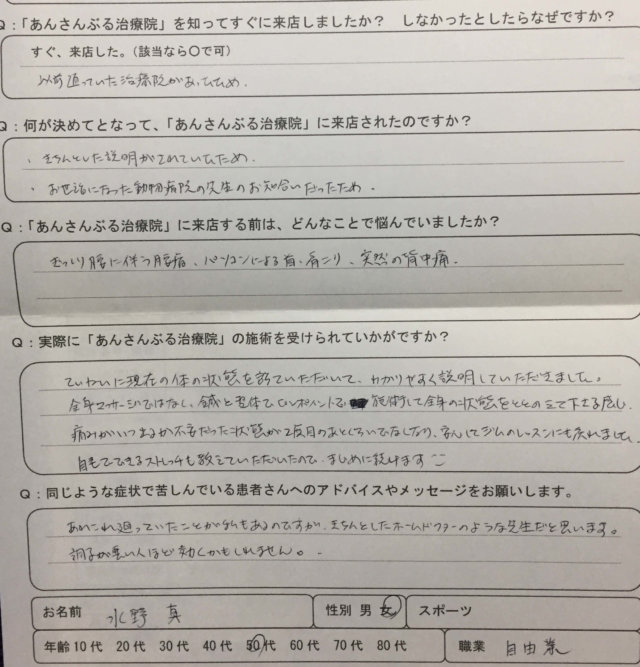 Q：「あんさんぶる治療院」を知ってすぐに来店しましたか？　しなかったとしたらなぜですか？
すぐ、来店した。（該当なら〇で可）
以前通っていた治療院があったため。
Q：何が決めてとなって、「あんさんぶる治療院」に来店されたのですか？
・きちんとした説明がされていたため。
・お世話になった動物病院の先生のお知合いだったため。
Q：「あんさんぶる治療院」に来店する前は、どんなことで悩んでいましたか？
ぎっくり腰に伴う腰痛、パソコンによる首、肩こり、突然の背中痛。
Q：実際に「あんさんぶる治療院」の施術を受けられていかがですか？
ていねいに現在の体の状態を診ていただいて、わかりやすく説明していただきました。
全身マッサージではなく、鍼と整体でピンポイントで施術して全身の状態をととのえて下さる感じ。
痛みがいつ出るか不安だった状態が2度目のあとくらいでなくなり、安心してジムのレッスンにも戻れました。
自宅でできるストレッチも教えていただいたので、まじめに続けます
Q：同じような症状で苦しんでいる患者さんへのアドバイスやメッセージをお願いします。
あちこち通っていたことが私もあるのですが、きちんとしたホームドクターのような先生だと思います。
調子が悪い人ほど効くかもしれません。
お名前　水野 真　性別 男 女　スポーツ
年齢 10代　20代　30代　40代　50代　60代　70代　80代　職業　自由業